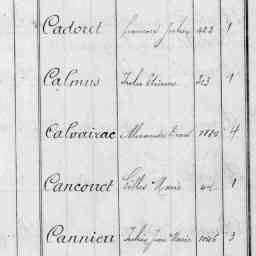 Cadoret 423 1
Calmus Jules Etienne 313 1
Calvairac Alexandre 1180 4
Cancouet Gilles Marie 1
Cannieu Julien Jean Marie 1046 3